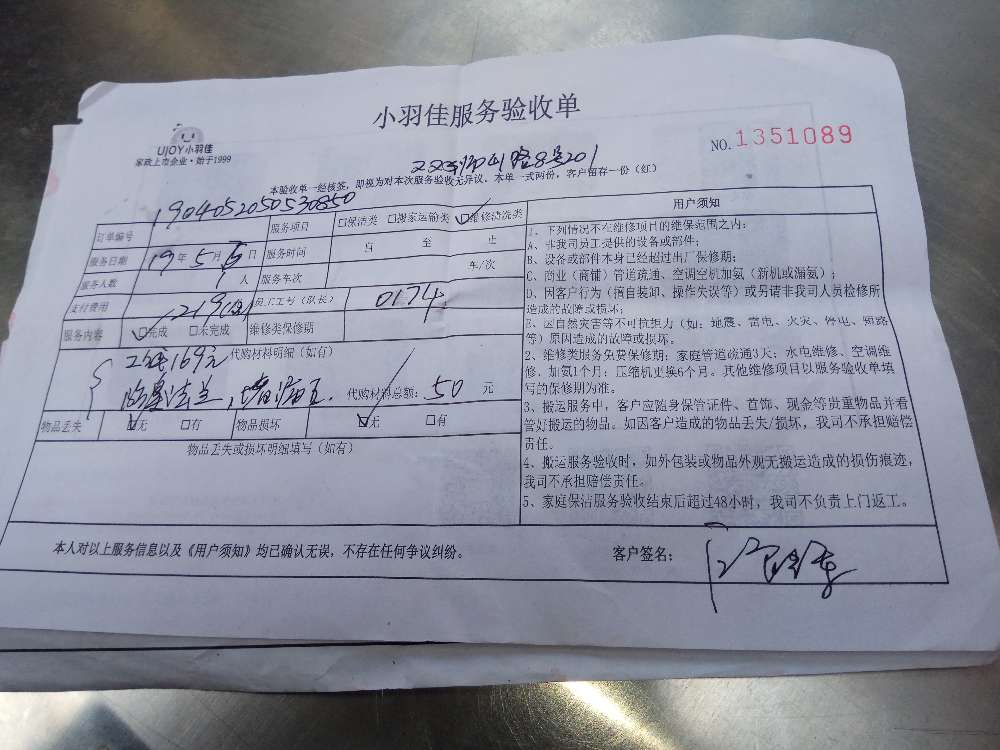 小羽佳服务验收单
UJOY小羽佳
家政上市企业·始于1999
NO.1351089
路8号201
本验收单一经核签，即视为对本次服务验收无异议。本单一式两份，客户留存一份（红）
订单编号 1904052050530850 服务项目 □保洁类 □搬家运输类 □维修清洗类
服务日期 19年5月 日 服务时间 自 至 止
服务人数 1人 服务车次 车/次
支付费用 219 员工工号（队长） 0174
服务内容 □完成 □未完成 维修类保修期
169元 代购材料明细（如有）
代购材料总额：50 元
物品丢失 □无 □有 物品损坏 □无 □有
物品丢失或损坏明细填写（如有）
用户须知
1、下列情况不在维修项目的维保范围之内：
A、非我司员工提供的设备或部件；
B、设备或部件本身已经超过出厂保修期；
C、商业（商铺）管道疏通、空调空机加氨（新机或漏氨）；
D、因客户行为（擅自装卸、操作失误等）或另请非我司人员检修所
造成的故障或损坏；
E、因自然灾害等不可抗拒力（如：地震、雷电、火灾、停电、短路
等）原因造成的故障或损坏。
2、维修类服务免费保修期：家庭管道疏通3天；水电维修、空调维
修、加氨1个月；压缩机更换6个月。其他维修项目以服务验收单填
写的保修期为准。
3、搬运服务中，客户应随身保管证件、首饰、现金等贵重物品并看
管好搬运的物品。如因客户造成的物品丢失/损坏，我司不承担赔偿
责任。
4、搬运服务验收时，如外包装或物品外观无搬运造成的损伤痕迹，
我司不承担赔偿责任。
5、家庭保洁服务验收结束后超过48小时，我司不负责上门返工。
本人对以上服务信息以及《用户须知》均已确认无误，不存在任何争议纠纷。 客户签名：